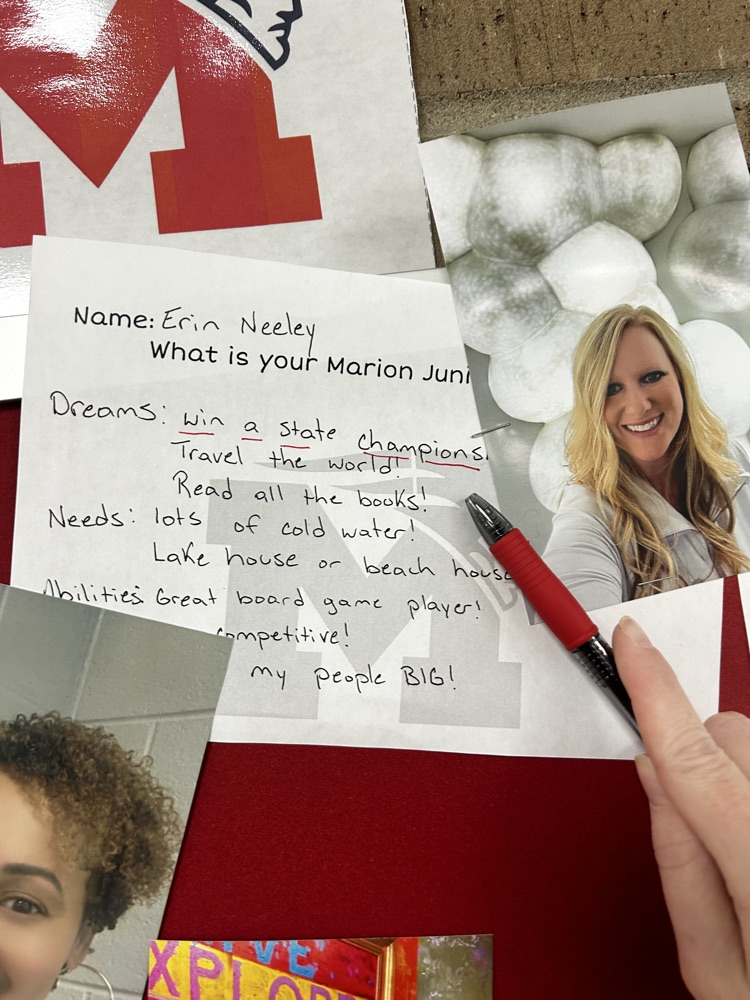 M
Name: Erin Neeley
What is your Marion Juni
Dreams: win a state champions
Travel the world!
Read all the books!
Needs: lots of cold water!
Lake house or beach house
Abilities: Great board game player!
competitive!
my people BIG!
M
VE
XPLOR